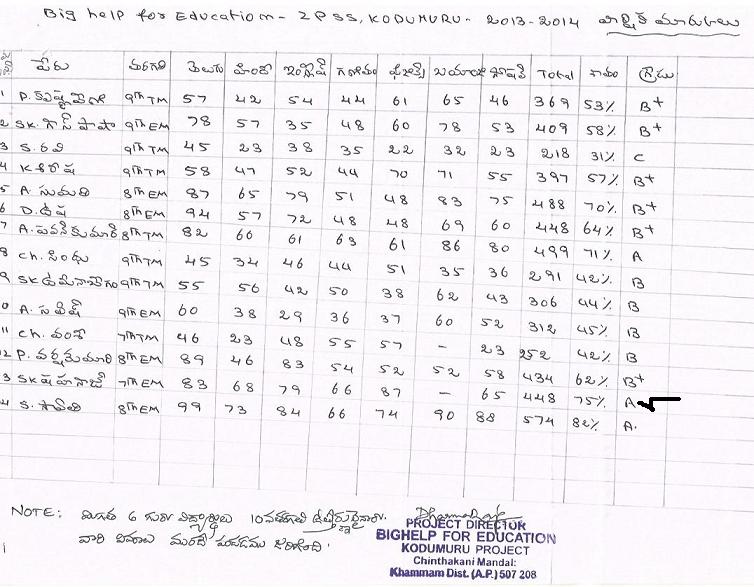 Big help for Education - ZPSS, KODUMURU - 2013-2014 వార్షిక మార్కులు
పేరు తరగతి తెలుగు హిందీ ఇంగ్లీష్ గణితం ఫిజిక్స్ బయాలజీ సోషల్ Total శాతం గ్రేడు
1 P. 9th TM 57 42 54 44 61 65 46 369 53% B+
2 SK. 9th EM 78 57 35 48 60 78 53 409 58% B+
3 S. రవి 9th TM 45 23 38 35 22 32 23 218 31% C
4 K. శిరీష 9th TM 58 47 52 44 70 71 55 397 57% B+
5 A. సుమతి 8th EM 87 65 79 51 48 83 75 488 70% B+
6 D. ఉష 8th EM 94 57 72 48 48 69 60 448 64% B+
7 A. పవన్ కుమార్ 8th TM 82 60 61 63 61 86 80 499 71% A
8 Ch. సింధు 9th TM 45 34 46 44 51 35 36 291 42% B
9 SK. 9th TM 55 56 42 50 38 62 43 306 44% B
0 A. 9th EM 60 38 29 36 37 60 52 312 45% B
11 Ch. వంశీ 7th TM 46 23 48 55 57 - 23 252 42% B
2 P. 8th EM 89 46 83 54 52 52 58 434 62% B+
3 SK. 7th EM 83 68 79 66 87 - 65 448 75% A
4 S. 8th EM 99 73 84 66 74 90 88 574 82% A.
NOTE: మిగతా 6 గురు విద్యార్థులు 10వ తరగతి ఉత్తీర్ణులైనారు.
వారి జరిగింది.
PROJECT DIRECTOR
BIGHELP FOR EDUCATION
KODUMURU PROJECT
Chinthakani Mandal:
Khammam Dist. (A.P.) 507 208